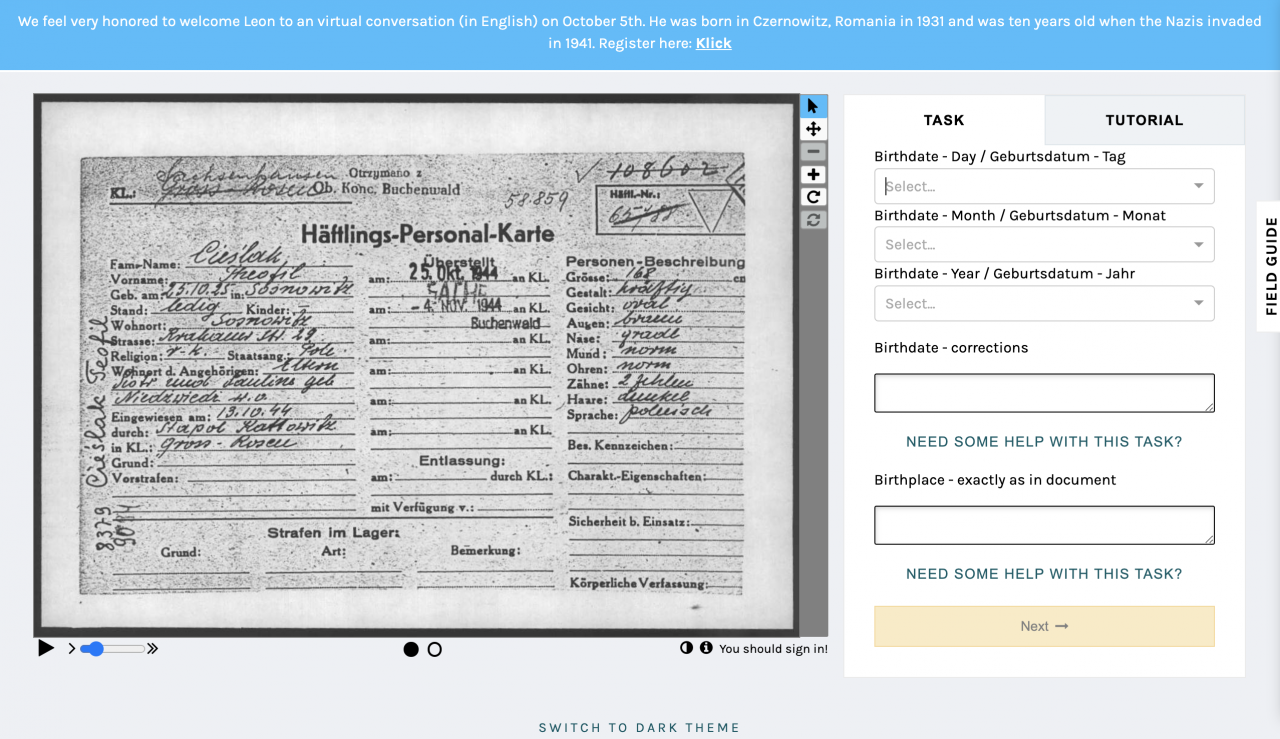 We feel very honored to welcome Leon to an virtual conversation (in English) on October 5th. He was born in Czernowitz, Romania in 1931 and was ten years old when the Nazis invaded
in 1941. Register here: Klick
Sachsenhausen
Otrzymano z
108602
KL.: Gross-Rosen Ob. Konc. Buchenwald
58.859
Häftl.-Nr.:
Häftlings-Personal-Karte
Fam-Name: Cieślak
Vorname: Theofil
Geb. am: 23.10.25 in: Sosnowitz
Stand: ledig Kinder: —
Wohnort: Sosnowitz
Strasse: Krakauer Str. 29
Religion: r.-k. Staatsang.: Pole
Wohnort d. Angehörigen: Eltern
Piotr und Paulina geb
Niedzwiedz w.o.
Eingewiesen am: 13.10.44
durch: Stapol Kattowitz
in KL.: Gross-Rosen
Grund:
Vorstrafen:
Überstellt
am: 25. Okt. 1944 an KL.
am: - 4. NOV. 1944 an KL.
Buchenwald
am: an KL.
am: an KL.
am: an KL.
am: an KL.
Entlassung:
am: durch KL.:
mit Verfügung v.:
Personen-Beschreibung
Grösse: 168 cm
Gestalt: kräftig
Gesicht: oval
Augen: braun
Nase: grade
Mund: norm
Ohren: norm
Zähne: 2 fehlen
Haare: dunkel
Sprache: polnisch
Bes. Kennzeichen:
Charakt.-Eigenschaften:
Sicherheit b. Einsatz:
Körperliche Verfassung:
Strafen im Lager:
Grund: Art: Bemerkung:
Cieślak Teofil
8379
You should sign in!
TASK
TUTORIAL
Birthdate - Day / Geburtsdatum - Tag
Select...
Birthdate - Month / Geburtsdatum - Monat
Select...
Birthdate - Year / Geburtsdatum - Jahr
Select...
Birthdate - corrections
NEED SOME HELP WITH THIS TASK?
Birthplace - exactly as in document
NEED SOME HELP WITH THIS TASK?
Next
FIELD GUIDE
SWITCH TO DARK THEME